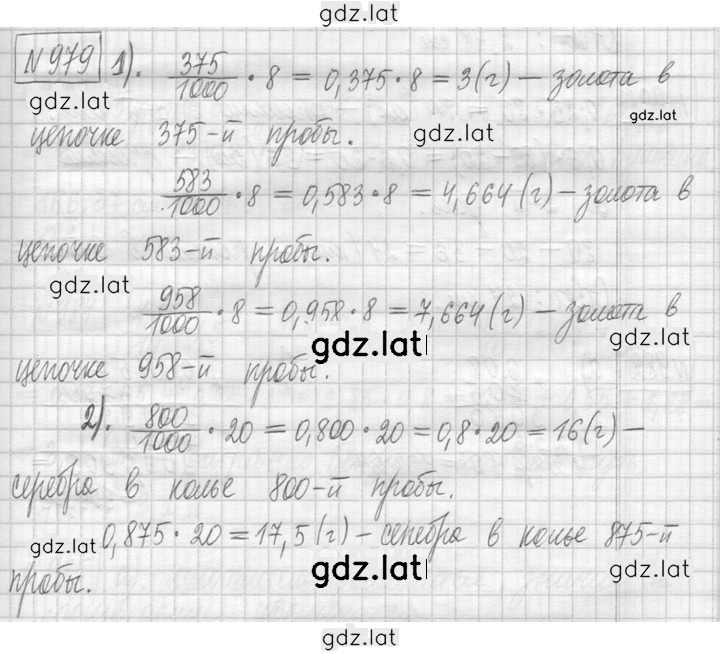 gdz.lat
№979 1). 375/1000 · 8 = 0,375 · 8 = 3(г) – золота в
gdz.lat
gdz.lat
цепочке 375-й пробы.
gdz.lat
583/1000 · 8 = 0,583 · 8 = 4,664(г) – золота в
цепочке 583-й пробы.
gdz.lat
958/1000 · 8 = 0,958 · 8 = 7,664(г) – золота в
gdz.lat
gdz.lat
цепочке 958-й пробы.
2). 800/1000 · 20 = 0,800 · 20 = 0,8 · 20 = 16(г) –
серебра в колье 800-й пробы.
0,875 · 20 = 17,5(г) – серебра в колье 875-й
gdz.lat
пробы.
gdz.lat
gdz.lat
gdz.lat